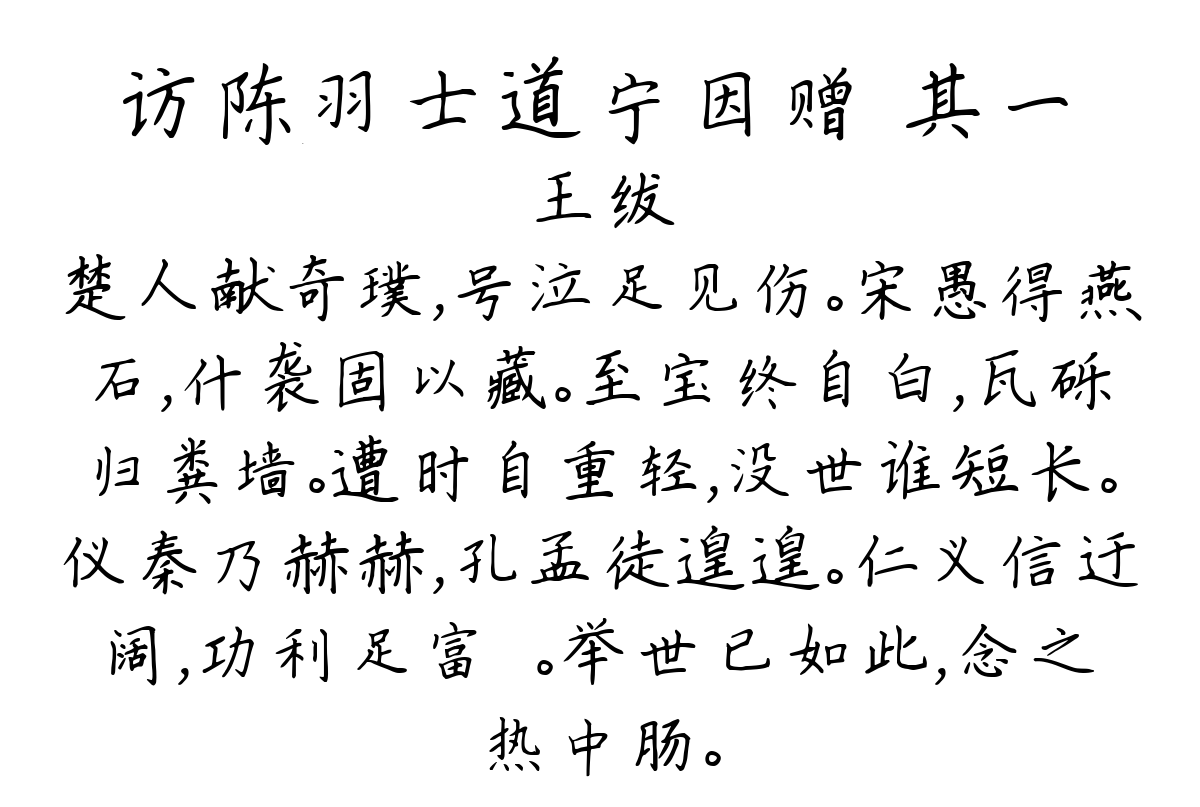 访陈羽士道宁因赠 其一
王绂
楚人献奇璞,号泣足见伤。宋愚得燕
石,什袭固以藏。至宝终自白,瓦砾
归粪墙。遭时自重轻,没世谁短长。
仪秦乃赫赫,孔孟徒遑遑。仁义信迂
阔,功利足富 。举世已如此,念之
热中肠。